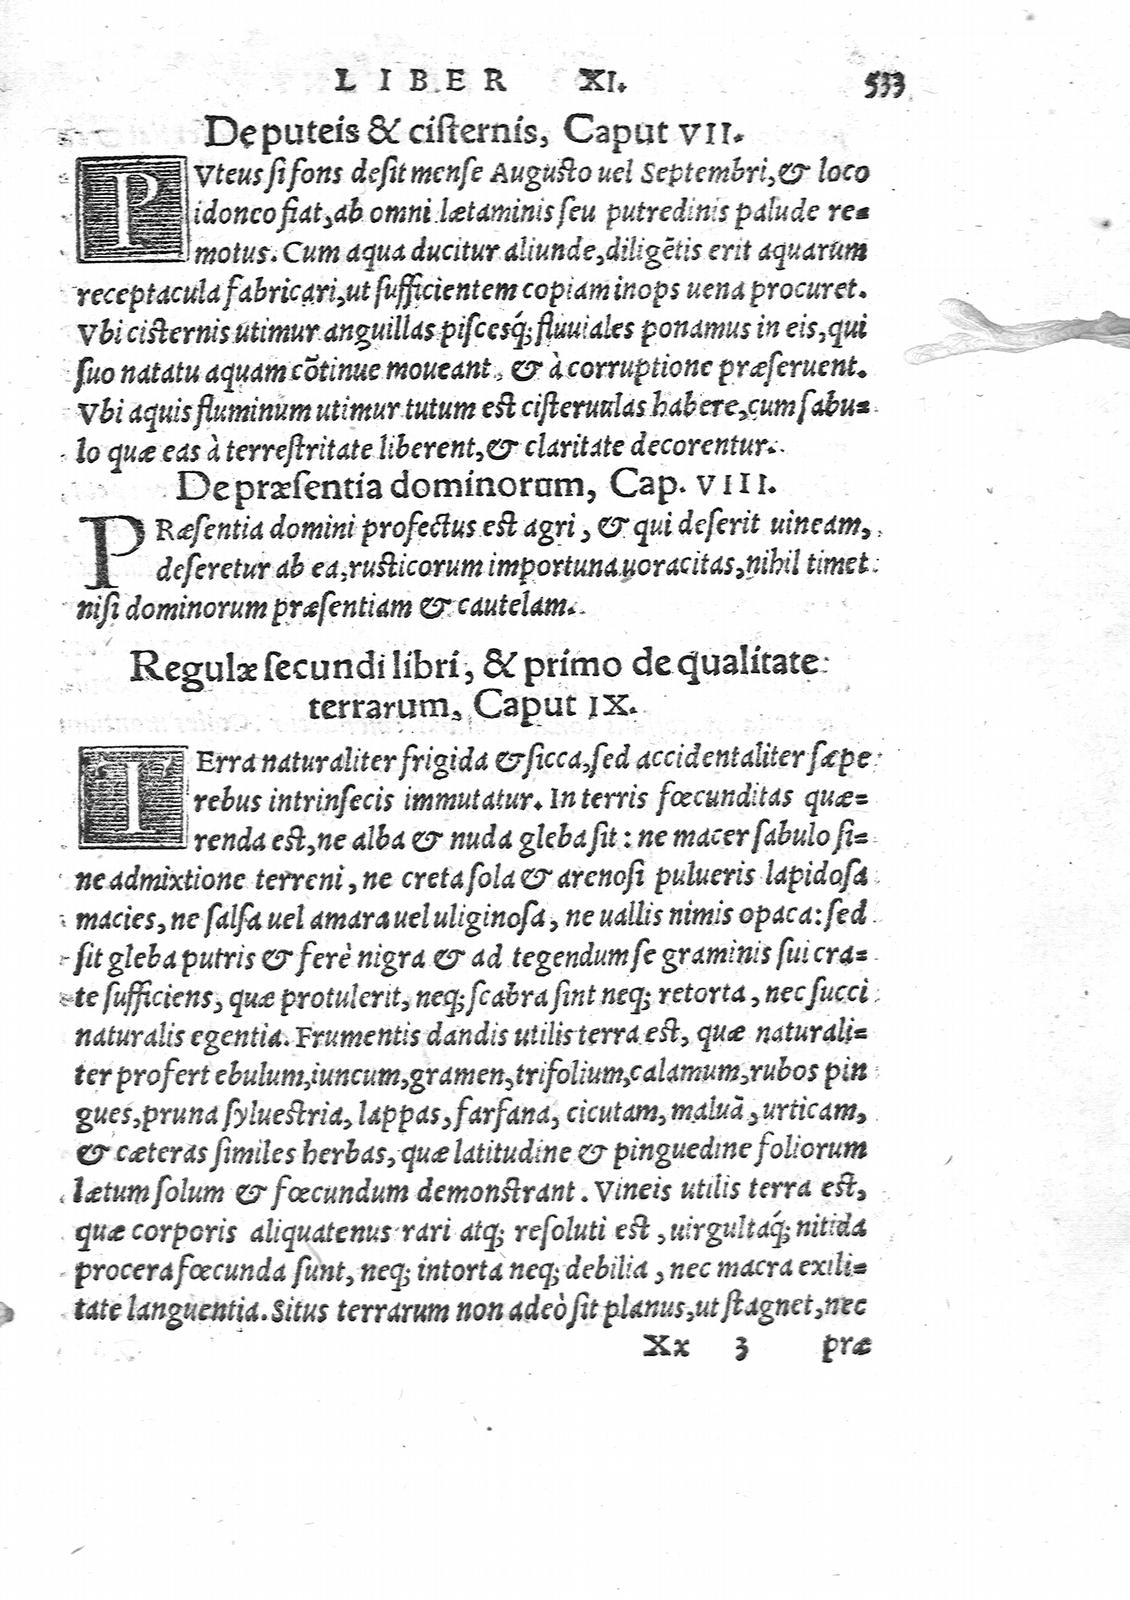 LIBER XI. 533
De puteis & cisternis, Caput VII.
PVteus si fons desit mense Augusto uel Septembri, & loco
idoneo fiat, ab omni lætaminis seu putredinis palude re=
motus. Cum aqua ducitur aliunde, diligẽtis erit aquarum
receptacula fabricari, ut sufficientem copiam inops uena procuret.
Vbi cisternis utimur anguillas piscesq́; fluuiales ponamus in eis, qui
suo natatu aquam cõtinue moueant, & à corruptione præseruent.
Vbi aquis fluminum utimur tutum est cisteruulas habere, cum sabu=
lo quæ eas à terrestritate liberent, & claritate decorentur.
De præsentia dominorum, Cap. VIII.
PRæsentia domini profectus est agri, & qui deserit uineam,
deseretur ab ea, rusticorum importuna uoracitas, nihil timet
nisi dominorum præsentiam & cautelam.
Regulæ secundi libri, & primo de qualitate
terrarum, Caput IX.
TErra naturaliter frigida & sicca, sed accidentaliter sæpe
rebus intrinsecis immutatur. In terris fœcunditas quæ=
renda est, ne alba & nuda gleba sit: ne macer sabulo si=
ne admixtione terreni, ne creta sola & arenosi pulueris lapidosa
macies, ne salsa uel amara uel uliginosa, ne uallis nimis opaca: sed
sit gleba putris & ferè nigra & ad tegendum se graminis sui cra=
te sufficiens, quæ protulerit, neq; scabra sint neq; retorta, nec succi
naturalis egentia. Frumentis dandis utilis terra est, quæ naturali=
ter profert ebulum, iuncum, gramen, trifolium, calamum, rubos pin
gues, pruna syluestria, lappas, farfana, cicutam, maluã, urticam,
& cæteras similes herbas, quæ latitudine & pinguedine foliorum
lætum solum & fœcundum demonstrant. Vineis utilis terra est,
quæ corporis aliquatenus rari atq; resoluti est, uirgultaq́; nitida
procera fœcunda sunt, neq; intorta neq; debilia, nec macra exili=
tate languentia. Situs terrarum non adeò sit planus, ut stagnet, nec
Xx 3 præ